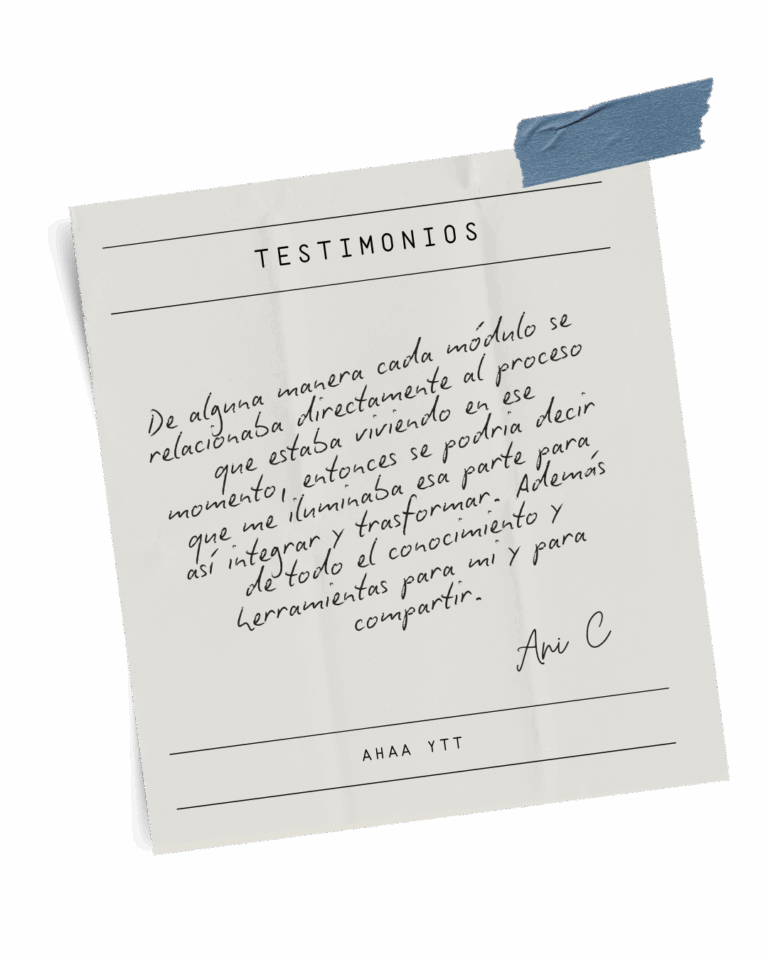 TESTIMONIOS
De alguna manera cada módulo se
relacionaba directamente al proceso
que estaba viviendo en ese
momento, entonces se podría decir
que me iluminaba esa parte para
así integrar y trasformar. Además
de todo el conocimiento y
herramientas para mi y para
compartir.
Ani C
AHAA YTT